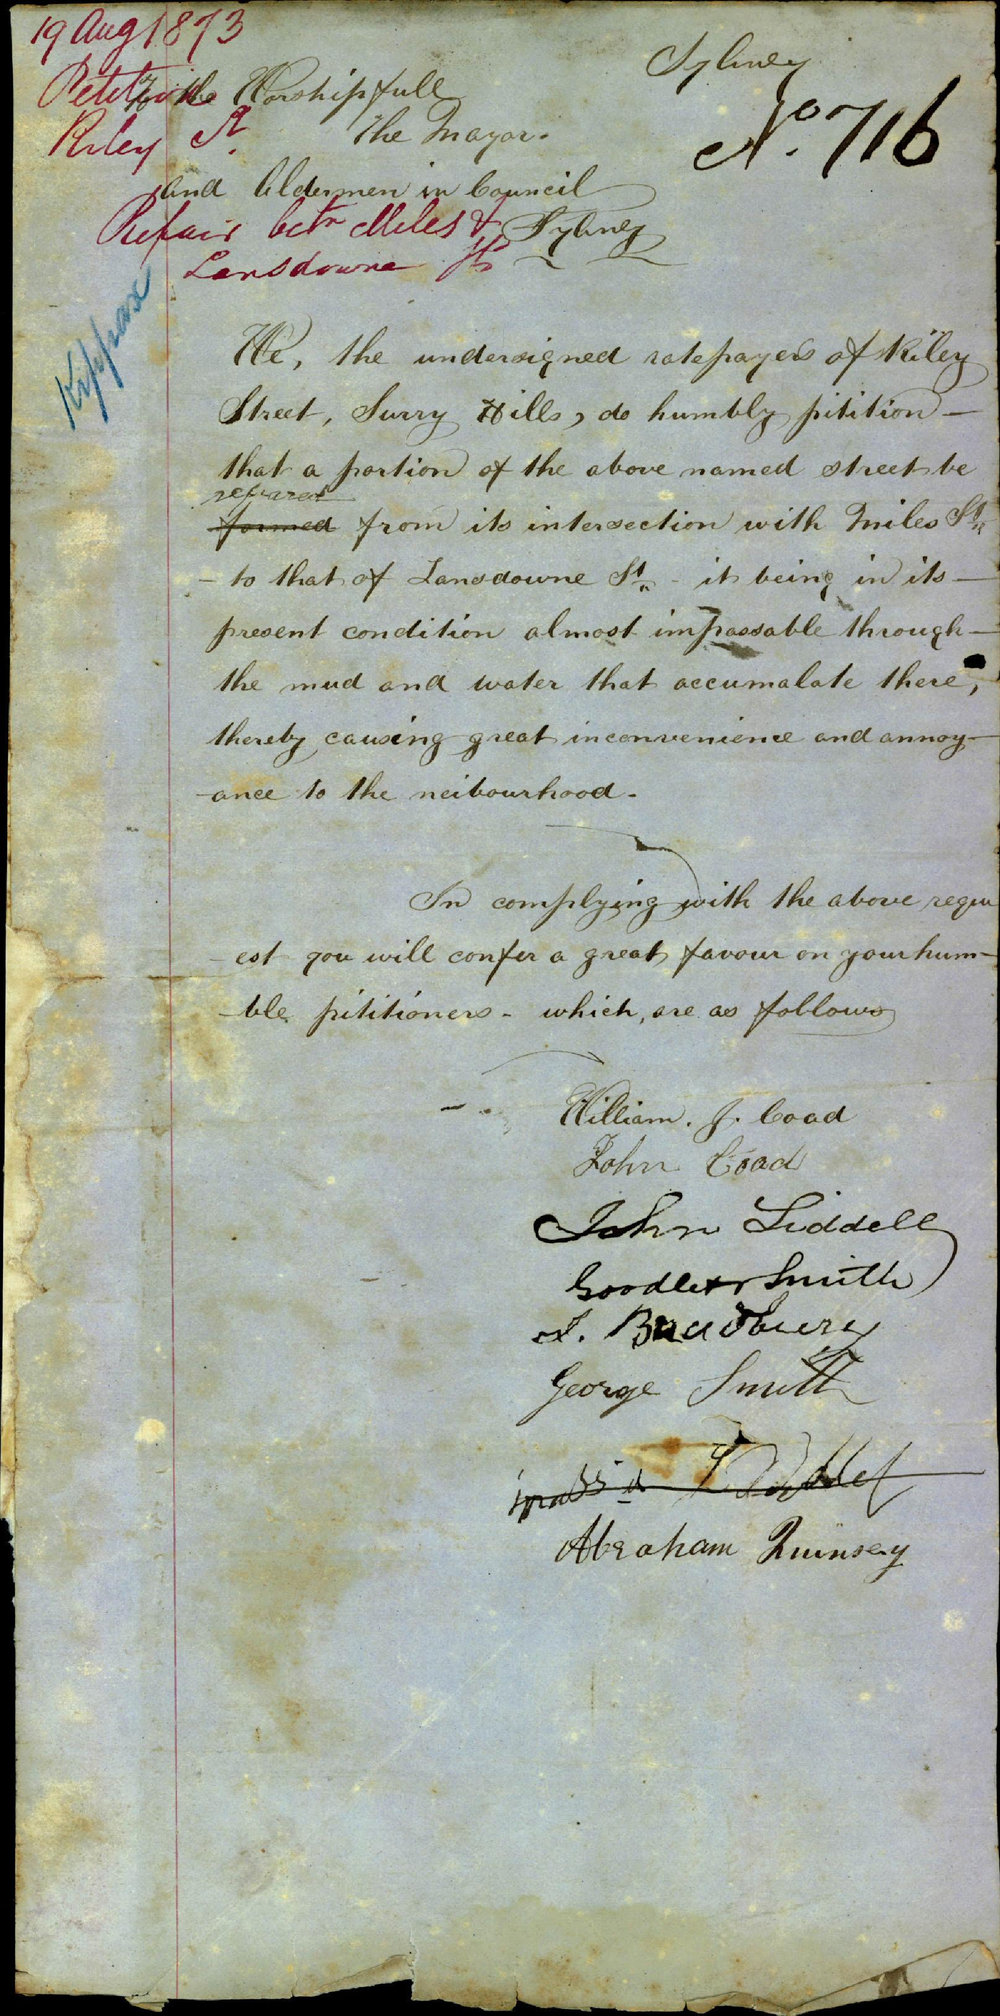 19 Aug 1873
Sydney
Petition
To the Worshipfull
No. 716
Riley St
The Mayor.
and Aldermen in Council
Repair betn Miles &
Sydney
Lansdowne Sts
Kippax
We, the undersigned ratepayers of Riley
Street, Surry Hills, do humbly pitition —
that a portion of the above named street be
repared
formed from its intersection with Miles St
- to that of Lansdowne St - it being in its —
present condition almost impassable through —
the mud and water that accumalate there,
thereby causing great inconvenience and annoy-
-ance to the neibourhood.
In complying with the above requ
est you will confer a great favour on your hum-
-ble pititioners - which, are as follows
William. J. Coad
John Coad
John Liddell
Goodlet & Smith
Bradbury
George Smith
Abraham Quinsey